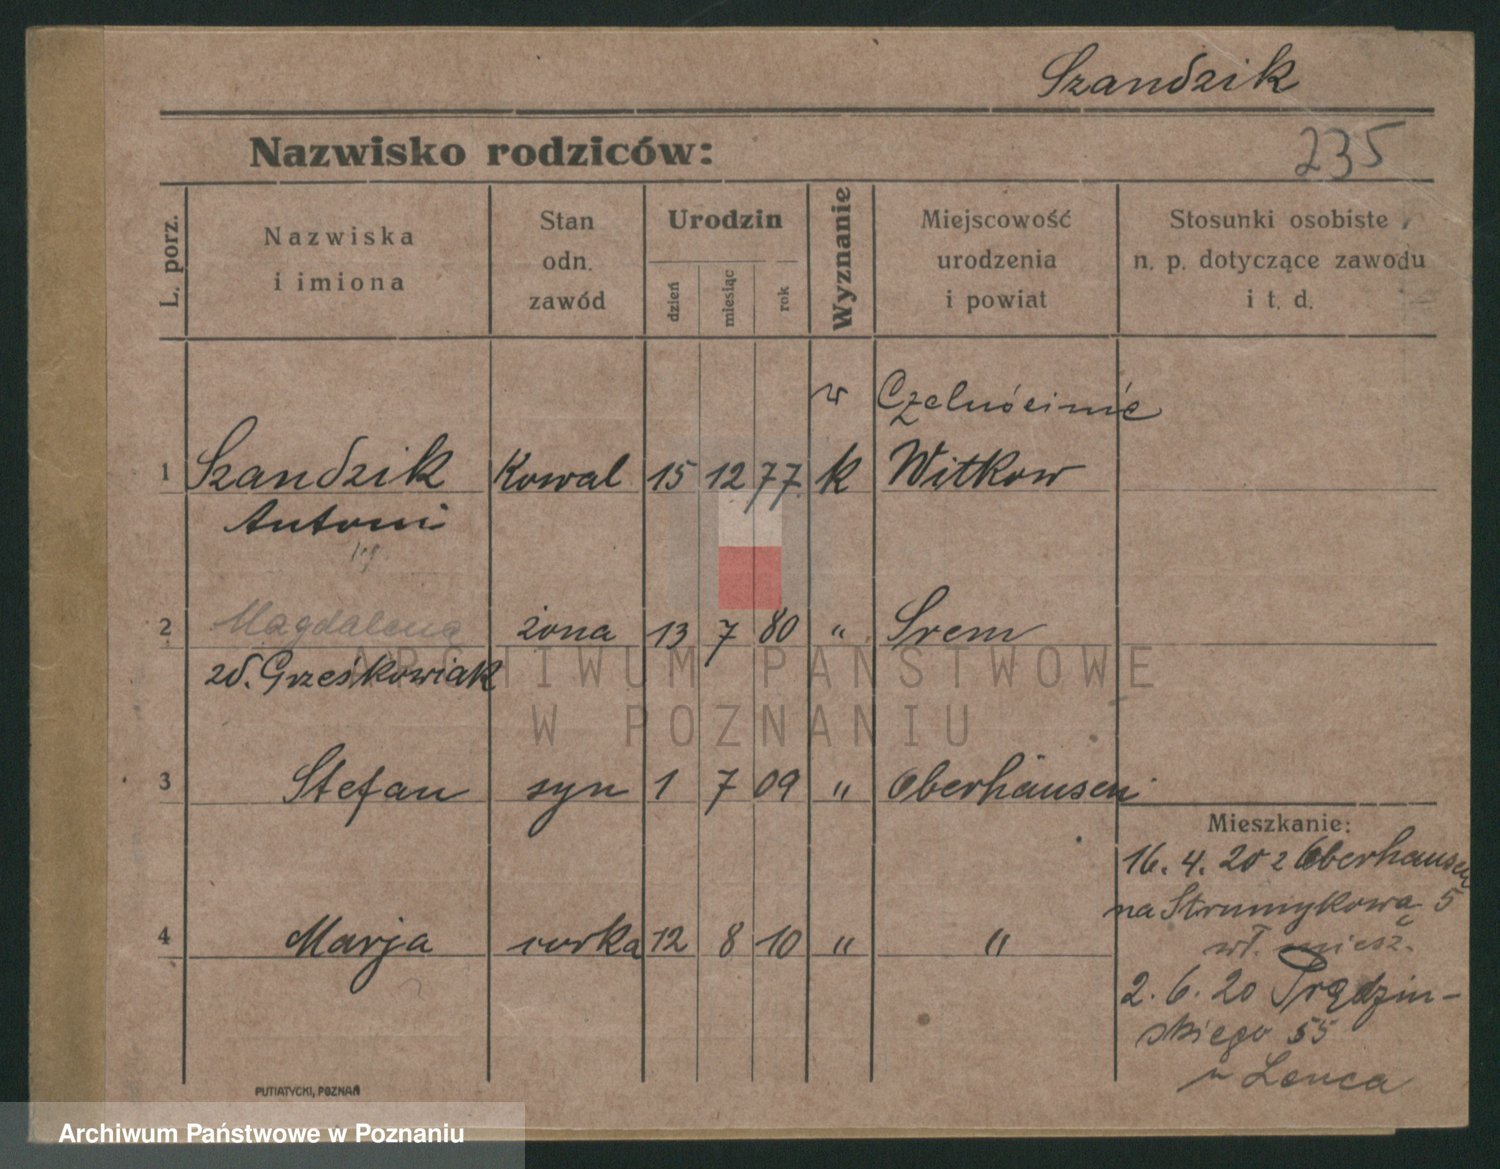 Szandzik
Nazwisko rodziców:
235
L. porz.
Nazwiska
i imiona
Stan
odn.
zawód
Urodzin
dzień
miesiąc
rok
Wyznanie
Miejscowość
urodzenia
i powiat
Stosunki osobiste
n. p. dotyczące zawodu
i t. d.
w
1 Szandzik Kowal 15 12 77 k Witkow
Antoni
2 Magdalena żona 13 7 80 " Srem
zd. Grześkowiak
3 Stefan syn 1 7 09 " Oberhausen
Mieszkanie:
16. 4. 20 z Oberhausen
na Strumykową 5
wł. miesz.
4 Marja corka 12 8 10 " "
2. 6. 20 Prądzin-
skiego 55
u
PUTIATYCKI, POZNAŃ
ARCHIWUM PAŃSTWOWE
W POZNANIU
Archiwum Państwowe w Poznaniu